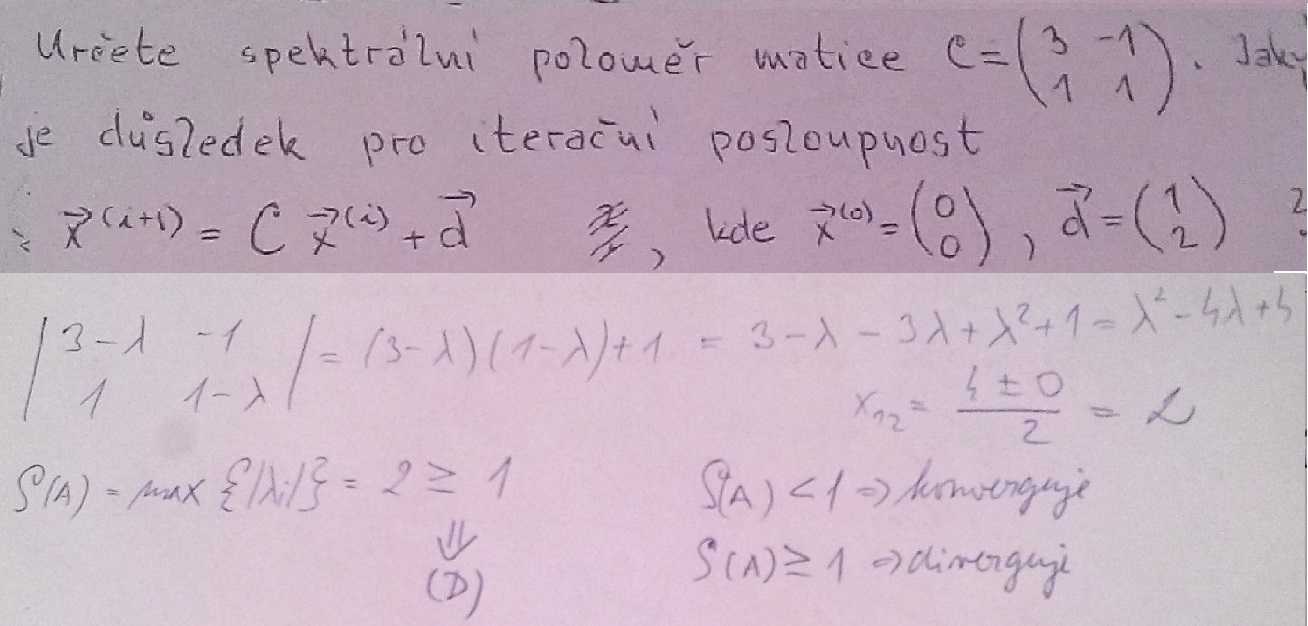 Určete spektrální poloměr matice C = (3 -1 1 1). Jaký
je důsledek pro iterační posloupnost
x⃗^(i+1) = C x⃗^(i) + d⃗ , kde x⃗^(0) = (0 0), d⃗ = (1 2) ?
|3-λ -1 1 1-λ| = (3-λ)(1-λ)+1 = 3-λ-3λ+λ²+1 = λ²-4λ+4
x₁₂ = (4 ± 0)/2 = 2
ρ(A) = max {|λi|} = 2 ≥ 1
ρ(A) < 1 ⇒ konverguje
⇓
(D)
ρ(A) ≥ 1 ⇒ diverguje